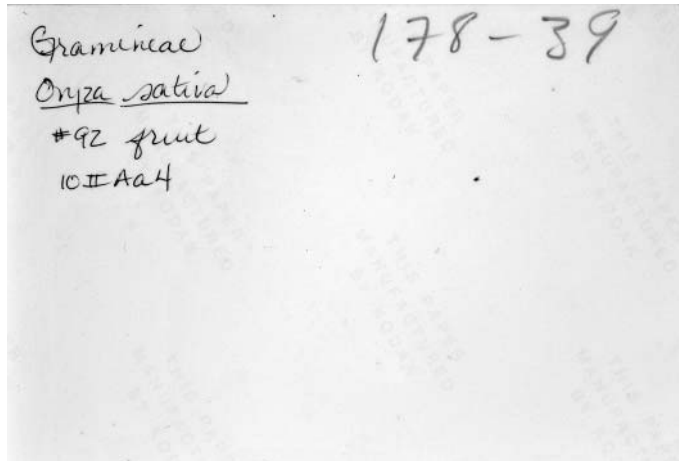 Gramineae
178-39
Oryza sativa
#92 fruit
10IIAa4
THIS PAPER
MANUFACTURED
BY KODAK